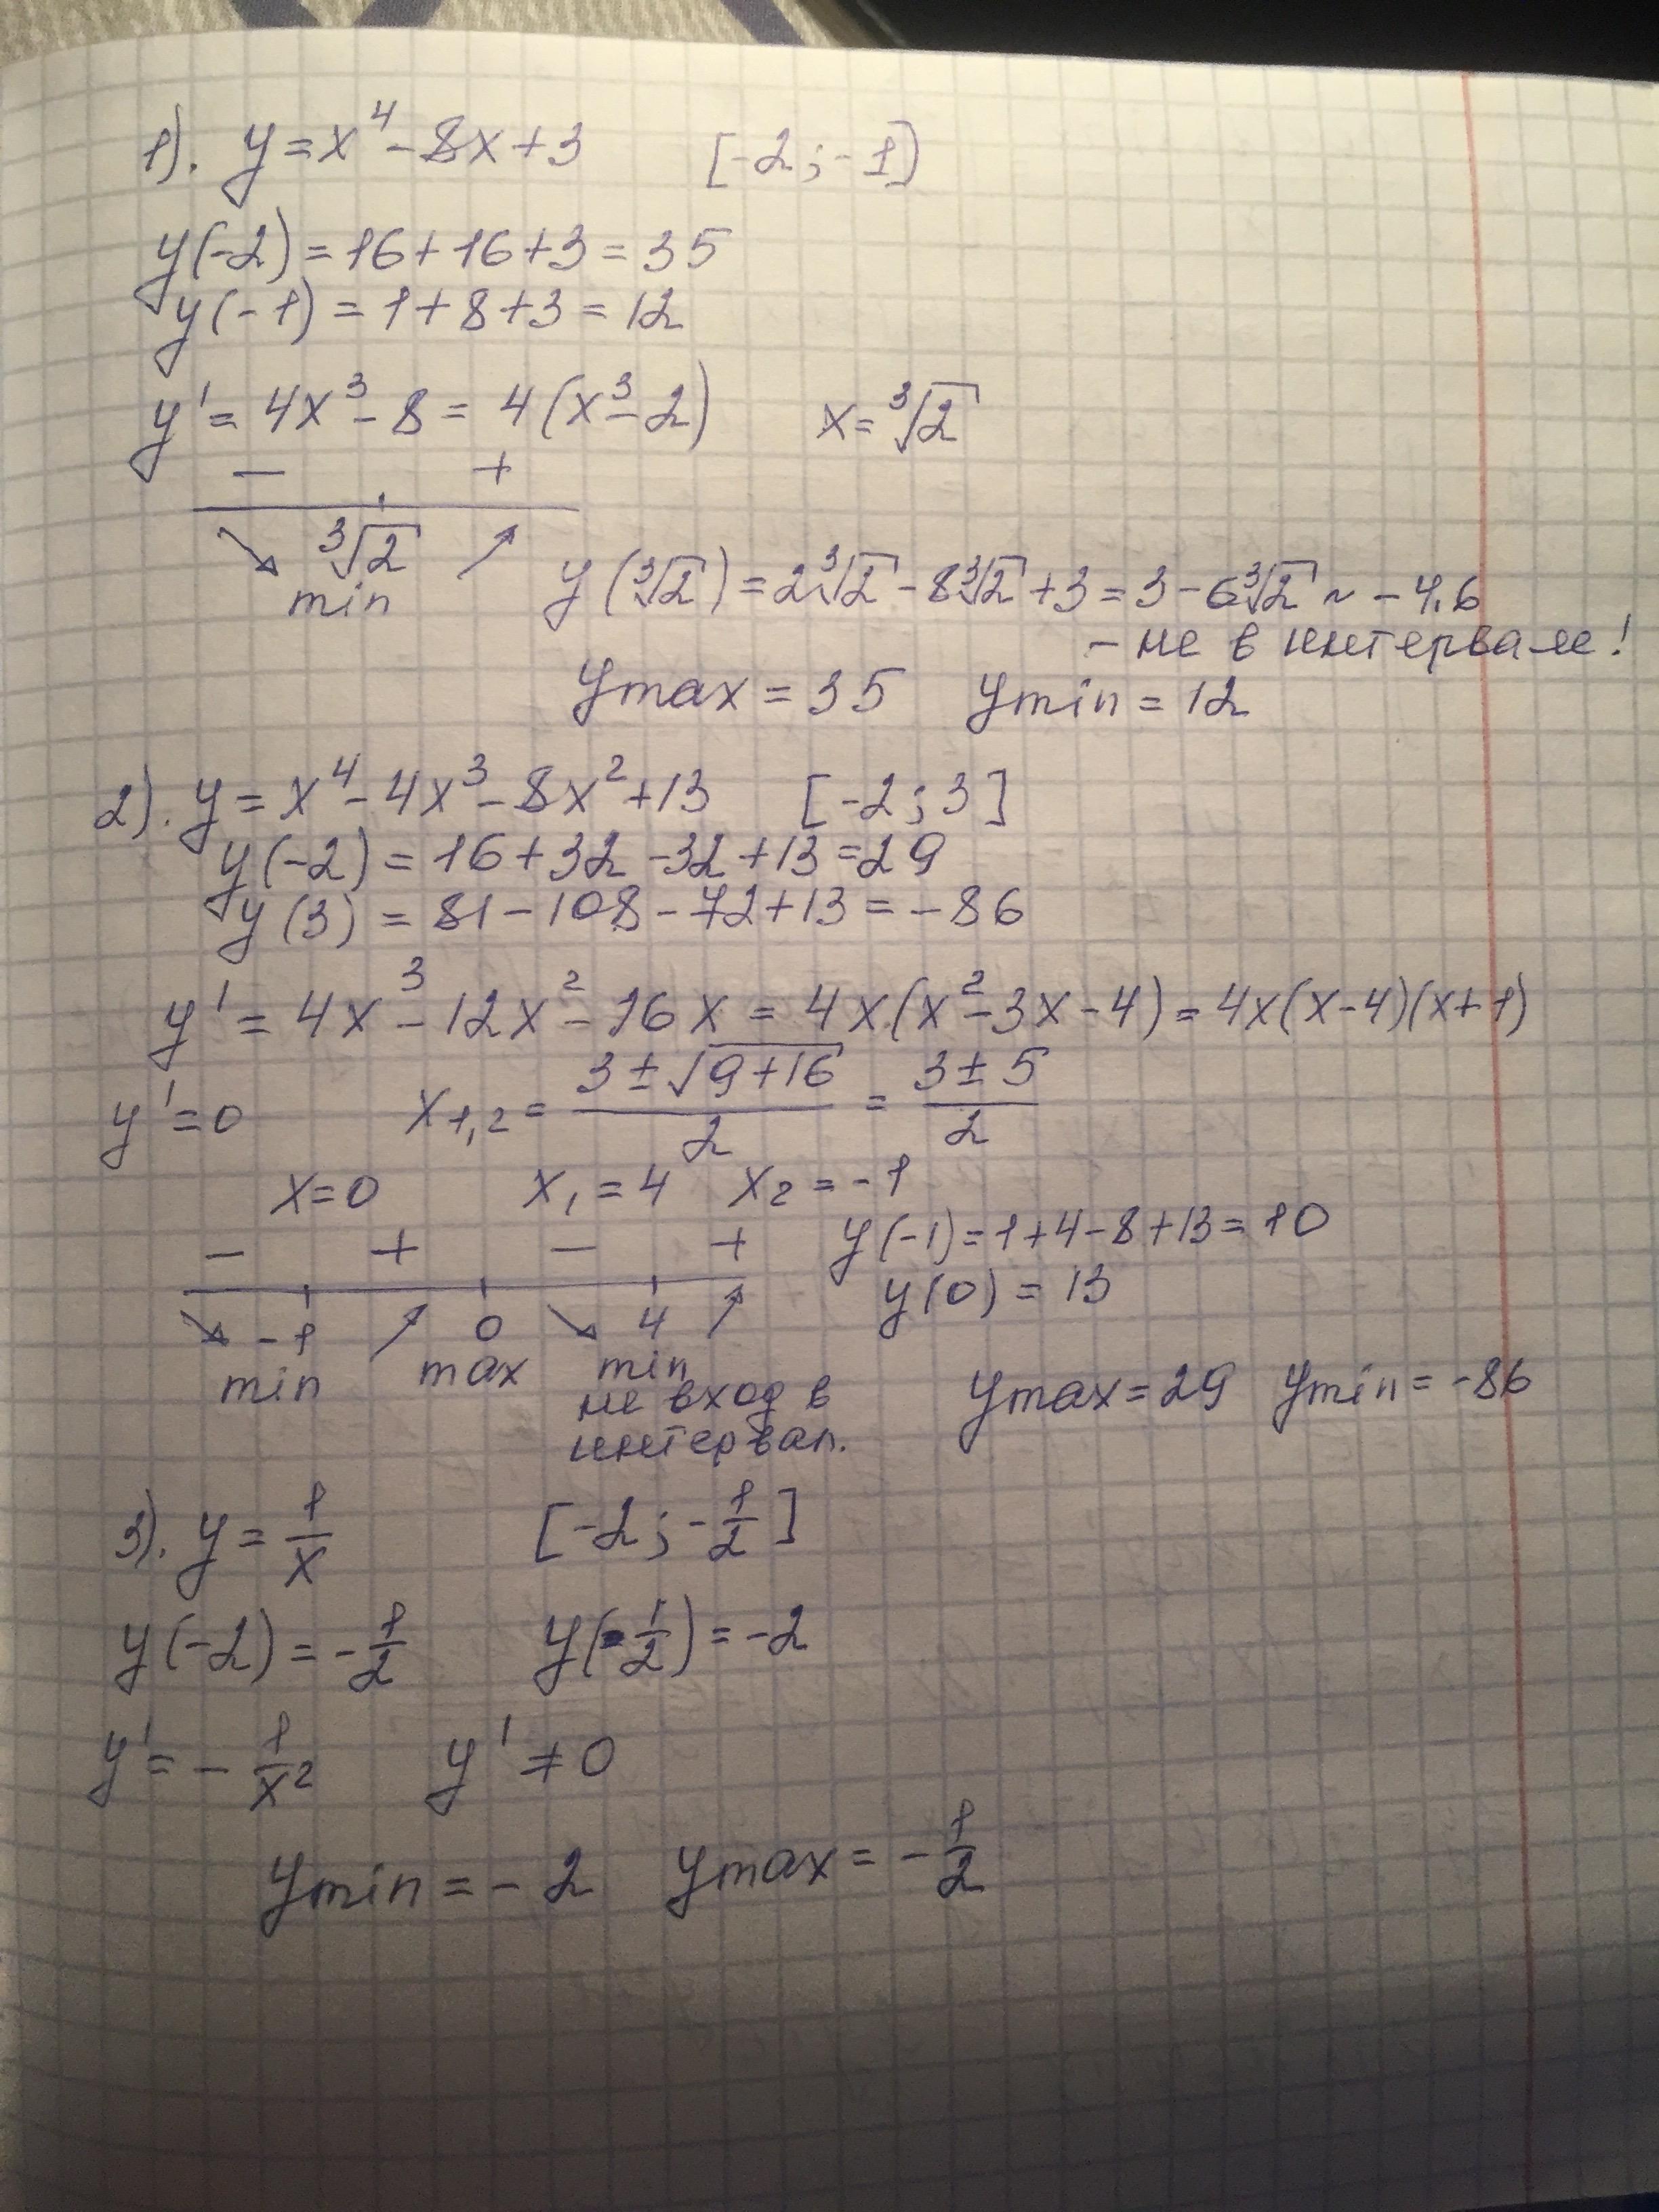 1). y = x⁴ - 8x + 3 [-2 ; -1]
y(-2) = 16 + 16 + 3 = 35
y(-1) = 1 + 8 + 3 = 12
y' = 4x³ - 8 = 4(x³ - 2) x = ∛2
- +
∛2
min y(∛2) = 2∛2 - 8∛2 + 3 = 3 - 6∛2 ~ -4,6
- не в интервале!
ymax = 35 ymin = 12
2). y = x⁴ - 4x³ - 8x² + 13 [-2 ; 3]
y(-2) = 16 + 32 - 32 + 13 = 29
y(3) = 81 - 108 - 72 + 13 = -86
y' = 4x³ - 12x² - 16x = 4x(x² - 3x - 4) = 4x(x-4)(x+1)
y' = 0 x₁,₂ = (3 ± √(9+16))/2 = (3 ± 5)/2
x = 0 x₁ = 4 x₂ = -1
- + - + y(-1) = 1 + 4 - 8 + 13 = 10
-1 0 4 y(0) = 13
min max min
не вход в
интервал. ymax = 29 ymin = -86
3). y = 1/x [-2 ; -1/2]
y(-2) = -1/2 y(-1/2) = -2
y' = -1/x² y' ≠ 0
ymin = -2 ymax = -1/2